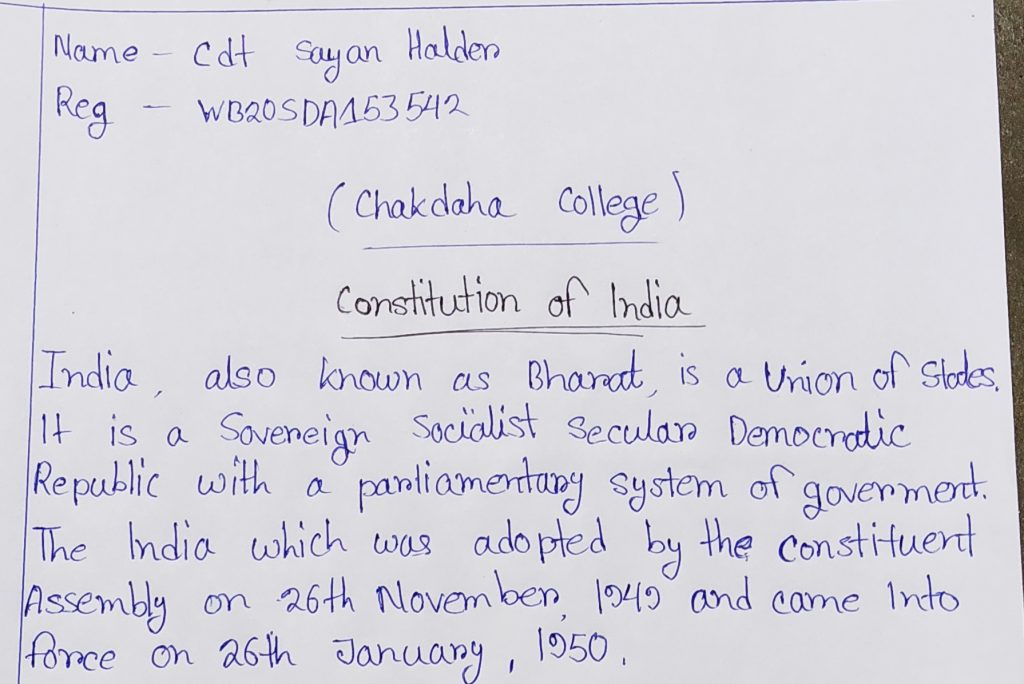 Name - Cdt Sayan Halder
Reg - WB20SDA153542
(Chakdaha College)
Constitution of India
India, also known as Bharat, is a Union of States.
It is a Sovereign Socialist Secular Democratic
Republic with a parliamentary system of goverment.
The India which was adopted by the constituent
Assembly on 26th November, 1949 and came Into
force on 26th January, 1950.